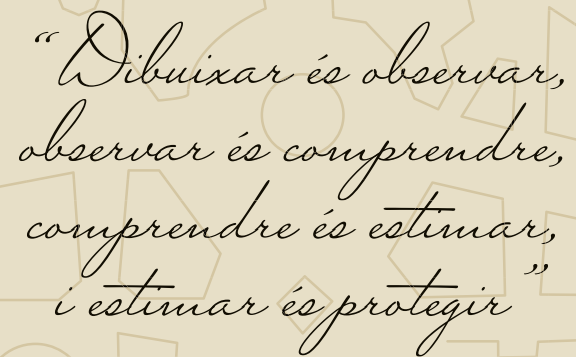 “Dibuixar és observar,
observar és comprendre,
comprendre és estimar,
i estimar és protegir”